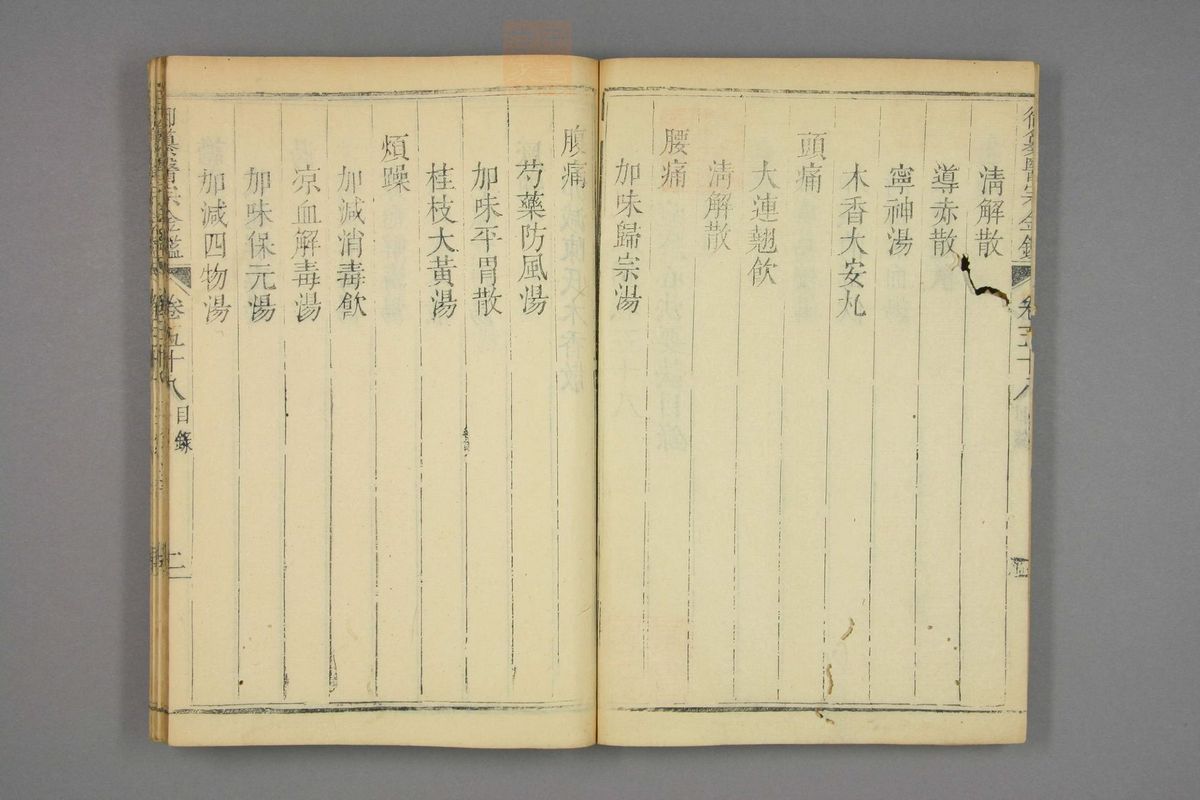 淸解散
導赤散
寧神湯
木香大安丸
頭痛
大連翹飮
淸解散
腰痛
加味歸宗湯
腹痛
芍藥防風湯
加味平胃散
桂枝大黃湯
煩躁
加減消毒飮
凉血解毒湯
加味保元湯
加減四物湯
御纂醫宗金鑑
卷五十八
目錄
二